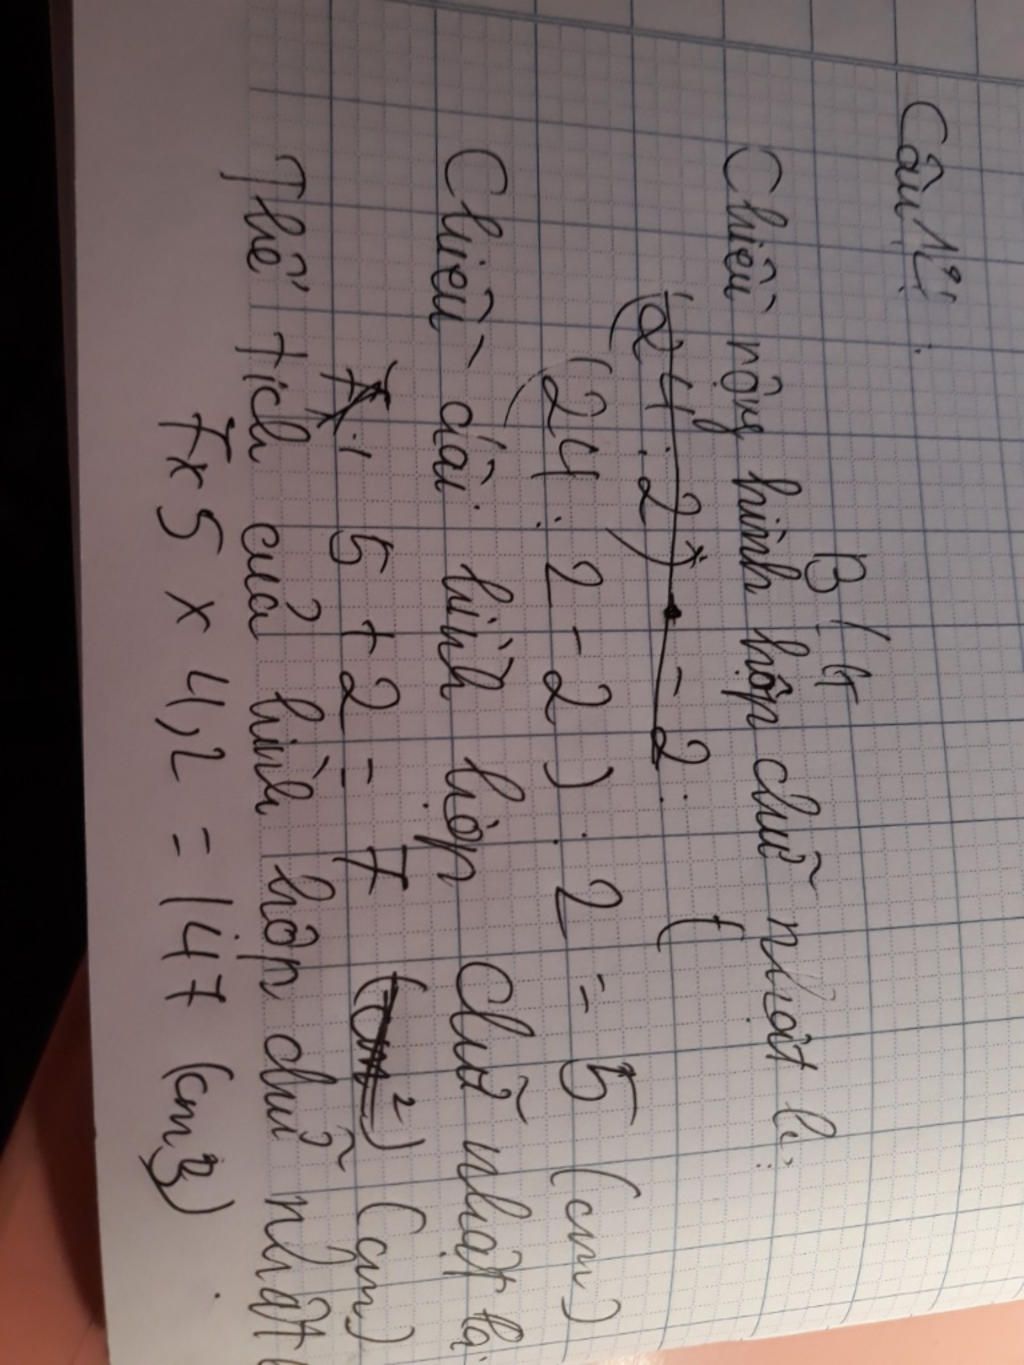 Câu 12:
B/G
Chiều rộng hình hộp chữ nhật là:
(24:2) - 2: (
(24:2-2):2=5 (cm)
Chiều dài hình hộp chữ nhật là
5+2=7 (cm²) (cm)
Thể tích của hình hộp chữ nhật
7x5x4,2=147 (cm3)